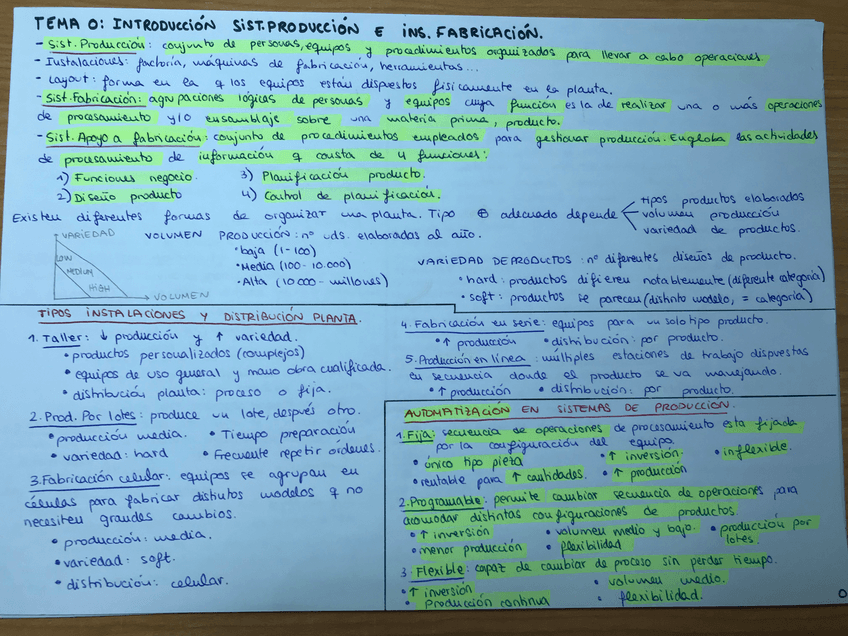 TEMA 0: INTRODUCCIÓN SIST.PRODUCCIÓN E INS. FABRICACIÓN.
- Sist. Producción: conjunto de personas, equipos y procedimientos organizados para llevar a cabo operaciones
- Instalaciones: factoría, máquinas de fabricación, herramientas...
- Layout: forma en la q los equipos están dispuestos físicamente en la planta.
- Sist. Fabricación: agrupaciones lógicas de personas y equipos cuya función es la de realizar una o más operaciones
de procesamiento y/o ensamblaje sobre una materia prima, producto.
- Sist. Apoyo a fabricación: conjunto de procedimientos empleados para gestionar producción. Engloba las actividades
de procesamiento de información q consta de 4 funciones:
1) Funciones negocio. 3) Planificación producto.
2) Diseño producto 4) Control de planificación.
Existen diferentes formas de organizar una planta. Tipo ⊕ adecuado depende
tipos productos elaborados
volumen producción
variedad de productos.
VARIEDAD
LOW
MEDIUM
HIGH
VOLUMEN
VOLUMEN PRODUCCIÓN: nº uds. elaboradas al año.
• baja (1-100)
• Media (100-10.000)
• Alta (10.000 - millones)
VARIEDAD DE PRODUCTOS: nº diferentes diseños de producto.
• hard: productos difieren notablemente (diferente categoría)
• soft: productos se parecen (distinto modelo, = categoría)
TIPOS INSTALACIONES Y DISTRIBUCIÓN PLANTA.
1. Taller: ↓ producción y ↑ variedad.
• productos personalizados (complejos)
• equipos de uso general y mano obra cualificada.
• distribución planta: proceso o fija.
2. Prod. Por lotes: produce un lote, después otro.
• producción media. • Tiempo preparación
• variedad: hard • Frecuente repetir órdenes.
3. Fabricación celular: equipos se agrupan en
células para fabricar distintos modelos q no
necesiten grandes cambios.
• producción: media.
• variedad: soft.
• distribución: celular.
4. Fabricación en serie: equipos para un solo tipo producto.
• ↑ producción • distribución: por producto.
5. Producción en línea: múltiples estaciones de trabajo dispuestas
en secuencia donde el producto se va manejando.
• ↑ producción • distribución: por producto.
AUTOMATIZACIÓN EN SISTEMAS DE PRODUCCIÓN.
1. Fija: secuencia de operaciones de procesamiento esta fijada
por la configuración del equipo.
• único tipo pieza • ↑ inversión • inflexible.
• rentable para ↑ cantidades. • ↑ producción
2. Programable: permite cambiar secuencia de operaciones para
acomodar distintas configuraciones de productos
• ↑ inversión • volumen medio y bajo. • producción por
lotes.
• menor producción • flexibilidad
3. Flexible: capaz de cambiar de proceso sin perder tiempo.
• ↑ inversión • volumen medio.
• Producción continua • flexibilidad.
0